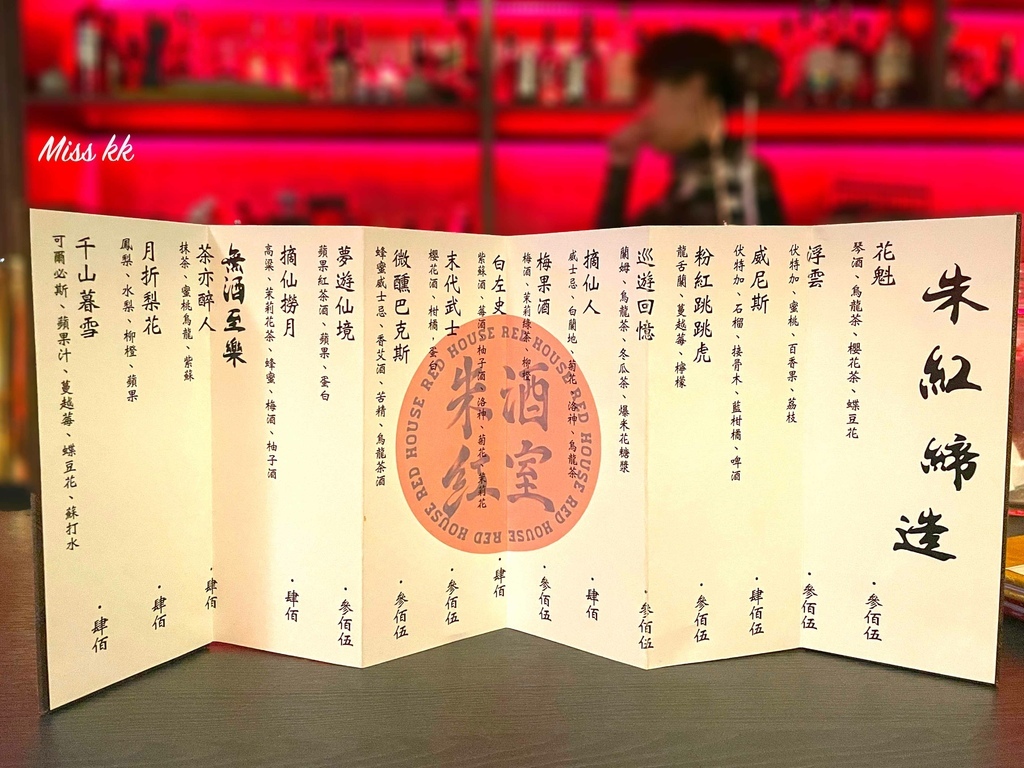 Miss kk
朱紅締造
花魁
琴酒、烏龍茶、櫻花茶、蝶豆花
·參佰伍
浮雲
伏特加、蜜桃、百香果、荔枝
·參佰伍
威尼斯
伏特加、石榴、接骨木、藍柑橘、啤酒
·肆佰
粉紅跳跳虎
龍舌蘭、蔓越莓、檸檬
·參佰伍
巡遊回憶
蘭姆、烏龍茶、冬瓜茶、爆米花糖漿
·參佰伍
摘仙人
威士忌、白蘭地、菊花、洛神、烏龍茶
·肆佰
梅果酒
梅酒、茉莉綠茶、柳橙
·參佰伍
白左史
紫蘇酒、莓酒、柚子酒、洛神、菊花、茉莉花
·肆佰
末代武士
櫻花酒、柑橘、蛋白
·參佰伍
微醺巴克斯
蜂蜜威士忌、香艾酒、苦精、烏龍茶酒
·參佰伍
夢遊仙境
蘋果紅茶酒、蘋果、蛋白
·參佰伍
摘仙撈月
高粱、茉莉花茶、蜂蜜、梅酒、柚子酒
·肆佰
無酒至樂
茶亦醉人
抹茶、蜜桃烏龍、紫蘇
·肆佰
月折梨花
鳳梨、水梨、柳橙、蘋果
·肆佰
千山暮雪
可爾必斯、蘋果汁、蔓越莓、蝶豆花、蘇打水
·肆佰
朱紅酒室
RED HOUSE RED HOUSE RED HOUSE RED HOUSE RED HOUSE